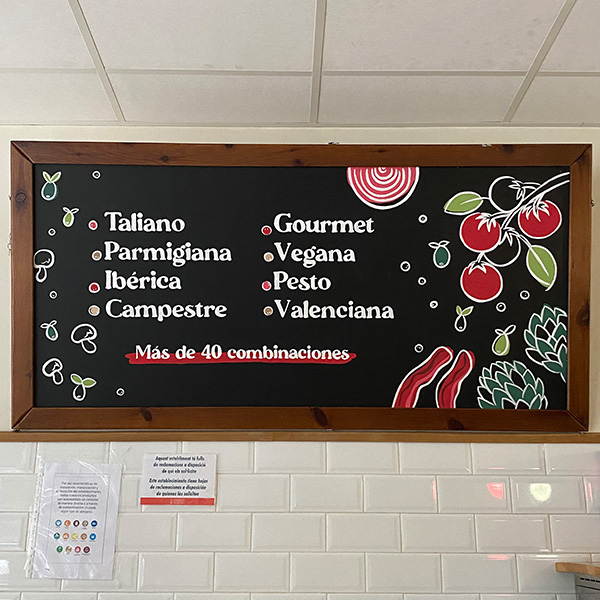 Taliano
Parmigiana
Ibérica
Campestre
Gourmet
Vegana
Pesto
Valenciana
Más de 40 combinaciones
Aquest establiment té fulls
de reclamacions a disposició
de qui els sol·licite
Este establecimiento tiene hojas
de reclamaciones a disposición
de quienes las soliciten